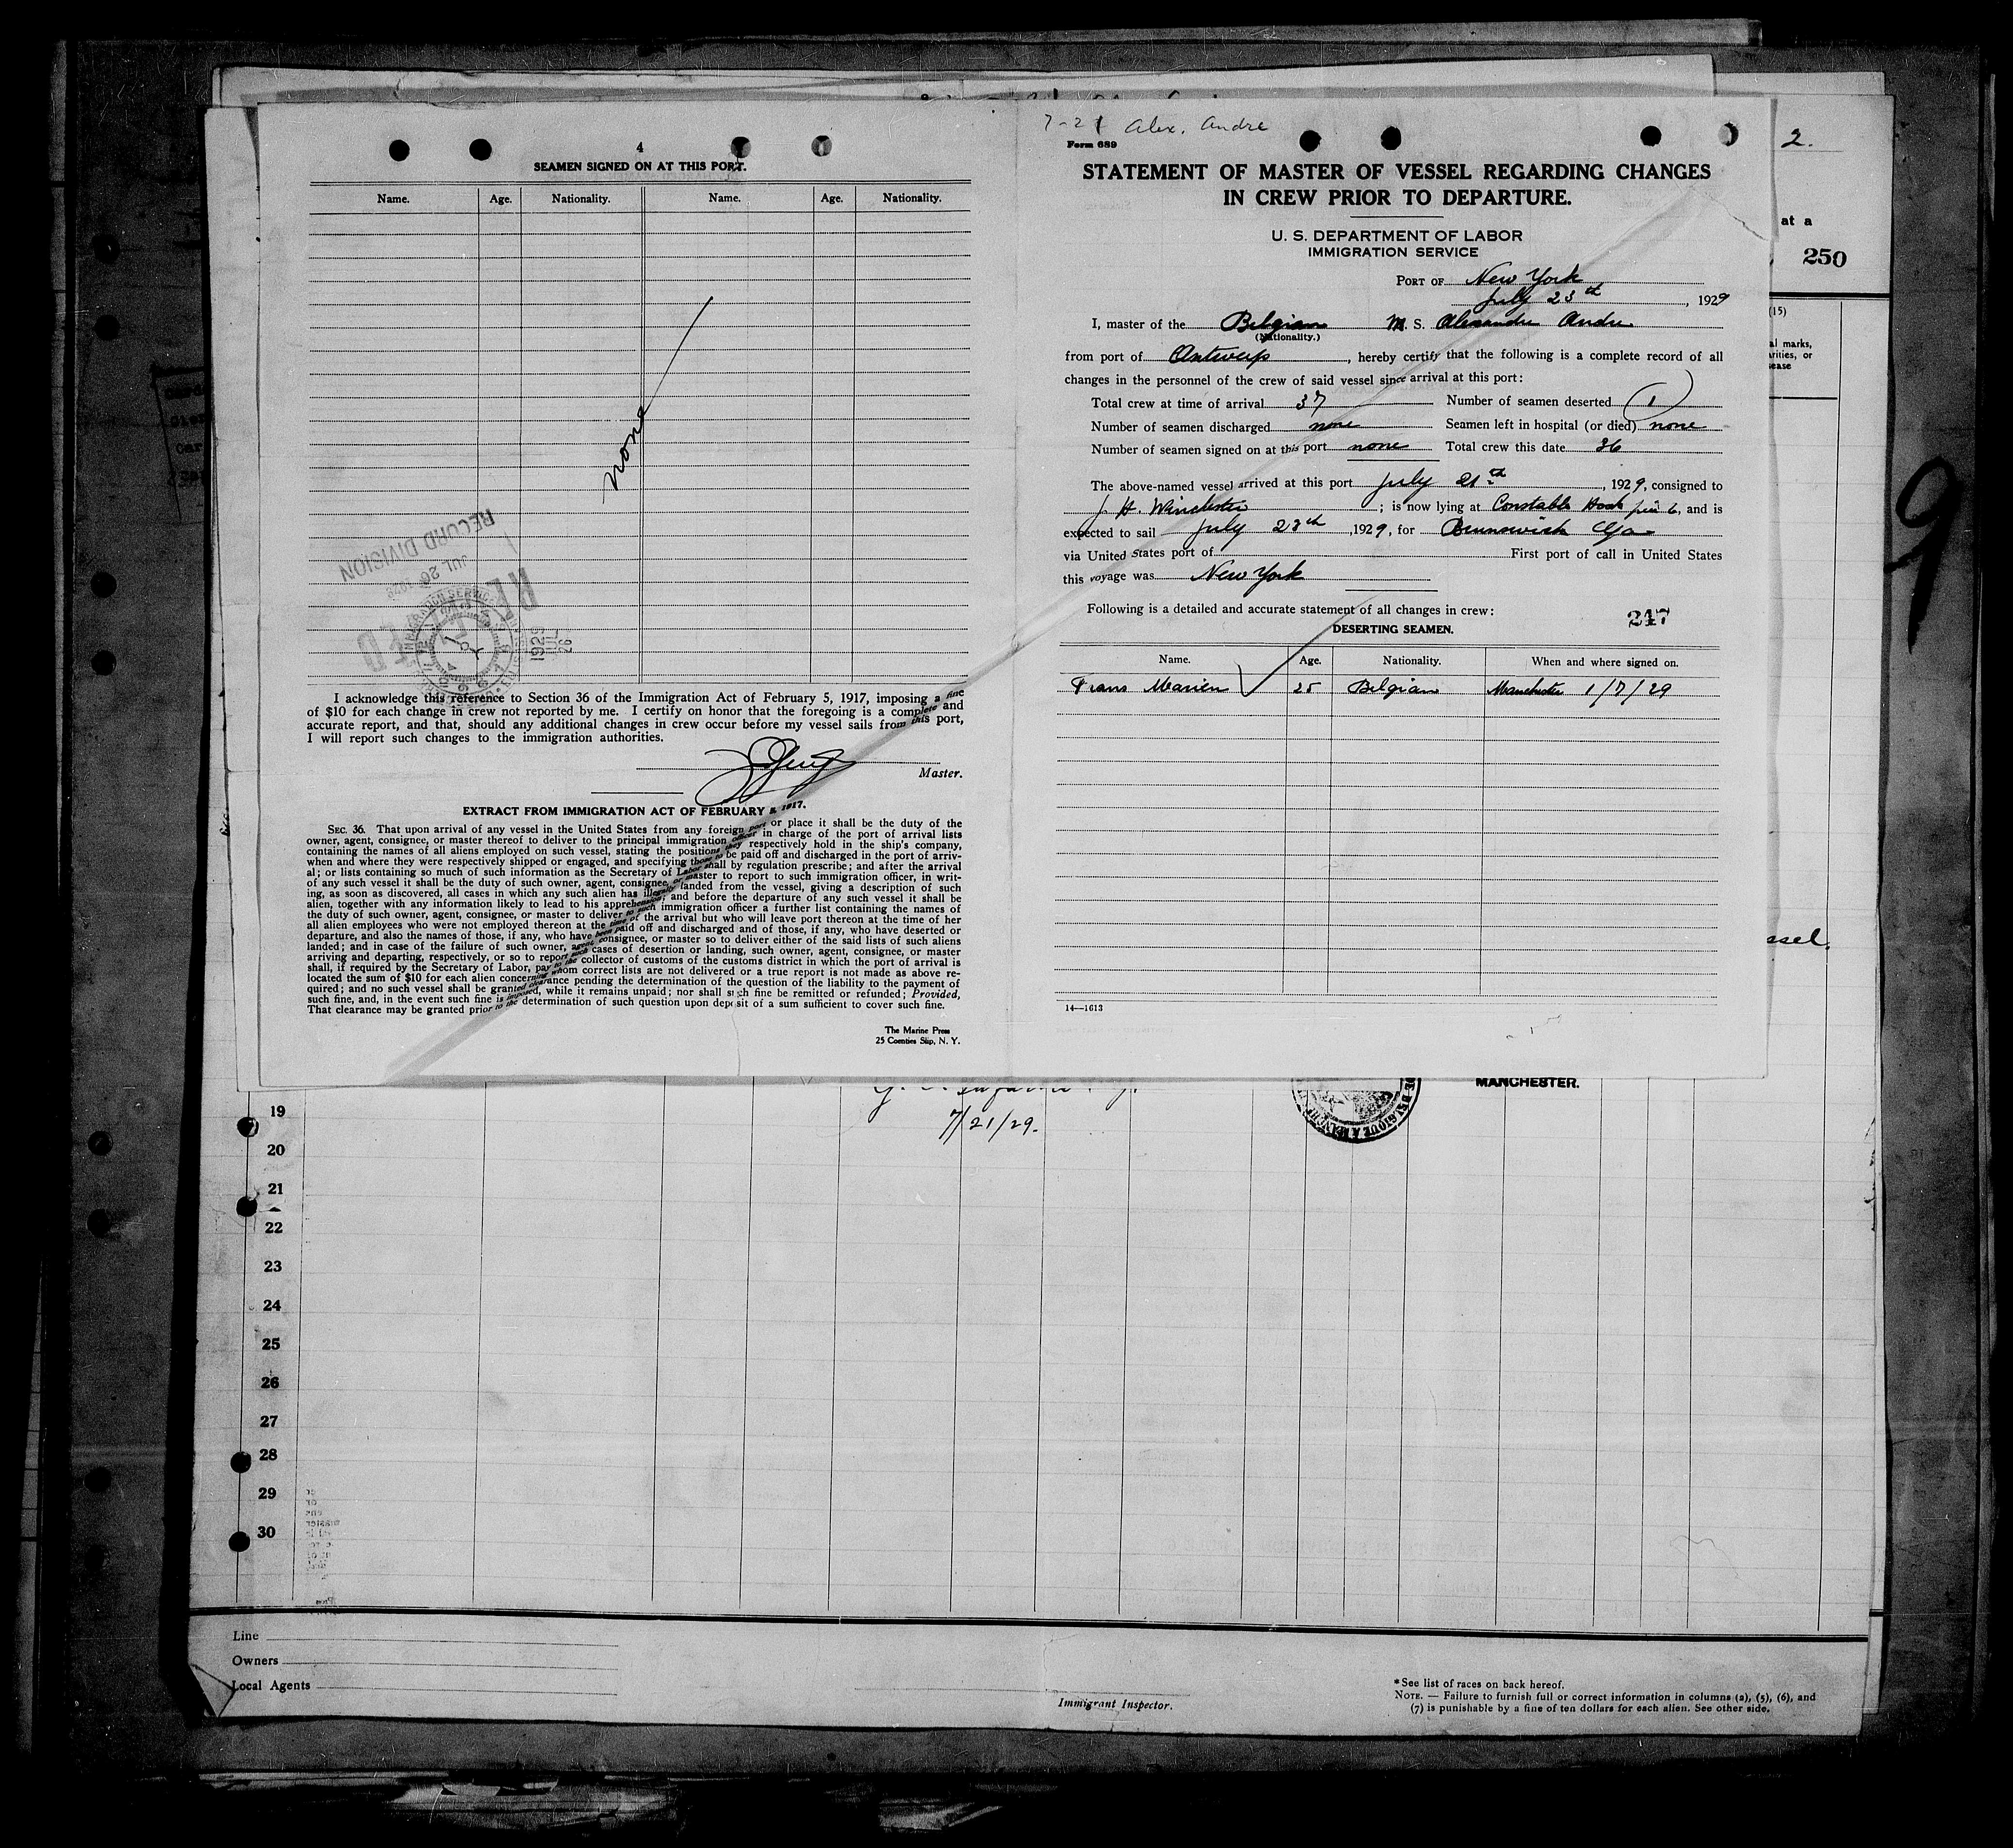 4
SEAMEN SIGNED ON AT THIS PORT.
Name. Age. Nationality. Name. Age. Nationality.
none
RECORD DIVISION
JUL 26
1929
JUL
26
I acknowledge this reference to Section 36 of the Immigration Act of February 5, 1917, imposing a fine
of $10 for each change in crew not reported by me. I certify on honor that the foregoing is a complete and
accurate report, and that, should any additional changes in crew occur before my vessel sails from this port,
I will report such changes to the immigration authorities.
Master.
EXTRACT FROM IMMIGRATION ACT OF FEBRUARY 5, 1917.
SEC. 36. That upon arrival of any vessel in the United States from any foreign port or place it shall be the duty of the
owner, agent, consignee, or master thereof to deliver to the principal immigration officer in charge of the port of arrival lists
containing the names of all aliens employed on such vessel, stating the positions they respectively hold in the ship's company,
when and where they were respectively shipped or engaged, and specifying those to be paid off and discharged in the port of arriv-
al; or lists containing so much of such information as the Secretary of Labor shall by regulation prescribe; and after the arrival
of any such vessel it shall be the duty of such owner, agent, consignee, or master to report to such immigration officer, in writ-
ing, as soon as discovered, all cases in which any such alien has illegally landed from the vessel, giving a description of such
alien, together with any information likely to lead to his apprehension; and before the departure of any such vessel it shall be
the duty of such owner, agent, consignee, or master to deliver to such immigration officer a further list containing the names of
all alien employees who were not employed thereon at the time of the arrival but who will leave port thereon at the time of her
departure, and also the names of those, if any, who have been paid off and discharged and of those, if any, who have deserted or
landed; and in case of the failure of such owner, agent, consignee, or master so to deliver either of the said lists of such aliens
arriving and departing, respectively, or so to report such cases of desertion or landing, such owner, agent, consignee, or master
shall, if required by the Secretary of Labor, pay to the collector of customs of the customs district in which the port of arrival is
located the sum of $10 for each alien concerning whom correct lists are not delivered or a true report is not made as above re-
quired; and no such vessel shall be granted clearance pending the determination of the question of the liability to the payment of
such fine, and, in the event such fine is imposed, while it remains unpaid; nor shall such fine be remitted or refunded; Provided,
That clearance may be granted prior to the determination of such question upon deposit of a sum sufficient to cover such fine.
The Marine Press
25 Coenties Slip, N. Y.
7-21 Alex. Andre
Form 689
STATEMENT OF MASTER OF VESSEL REGARDING CHANGES
IN CREW PRIOR TO DEPARTURE.
U. S. DEPARTMENT OF LABOR
IMMIGRATION SERVICE
PORT OF New York
July 23th, 1929
I, master of the Belgian M. S. Alexandre Andre
(Nationality.)
from port of Antwerp, hereby certify that the following is a complete record of all
changes in the personnel of the crew of said vessel since arrival at this port:
Total crew at time of arrival 37 Number of seamen deserted 1
Number of seamen discharged none Seamen left in hospital (or died) none
Number of seamen signed on at this port none Total crew this date 36
The above-named vessel arrived at this port July 21th, 1929, consigned to
J. H. Winchester; is now lying at Constable Hook pier 6, and is
expected to sail July 23th, 1929, for Brunswick Ga
via United States port of First port of call in United States
this voyage was New York
Following is a detailed and accurate statement of all changes in crew:
247
DESERTING SEAMEN.
Name. Age. Nationality. When and where signed on.
Frans Marien 25 Belgian Manchester 1/7/29
14—1613
2.
at a
250
(15)
al marks,
arities, or
sease
9
ssel.
MANCHESTER.
7/21/29.
19
20
21
22
23
24
25
26
27
28
29
30
Line
Owners
Local Agents
Immigrant Inspector.
*See list of races on back hereof.
NOTE. — Failure to furnish full or correct information in columns (2), (5), (6), and
(7) is punishable by a fine of ten dollars for each alien. See other side.